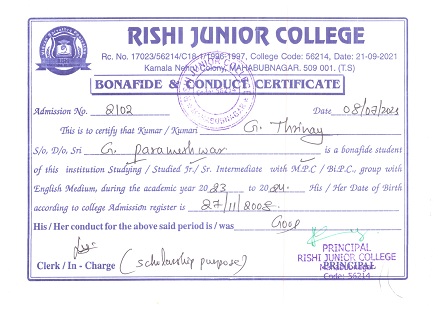 RISHI JUNIOR COLLEGE
Rc. No. 17023/56214/C18-1/1996-1997, College Code: 56214, Date: 21-09-2021
Kamala Nehru Colony, MAHABUBNAGAR, 509 001. (T.S)
BONAFIDE & CONDUCT CERTIFICATE
Admission No. 2102 Date 08/07/2023
This is to certify that Kumar / Kumari G. Thrinay
S/o. D/o. Sri G. parameshwar is a bonafide student
of this institution Studying / Studied Jr./ Sr. Intermediate with M.P.C / Bi.P.C., group with
English Medium, during the academic year 2023 to 2024. His / Her Date of Birth
according to college Admission register is 27/11/2008
His / Her conduct for the above said period is / was Good
Clerk / In - Charge (scholarship purpose)
PRINCIPAL
RISHI JUNIOR COLLEGE
PRINCIPAL
Code: 56214